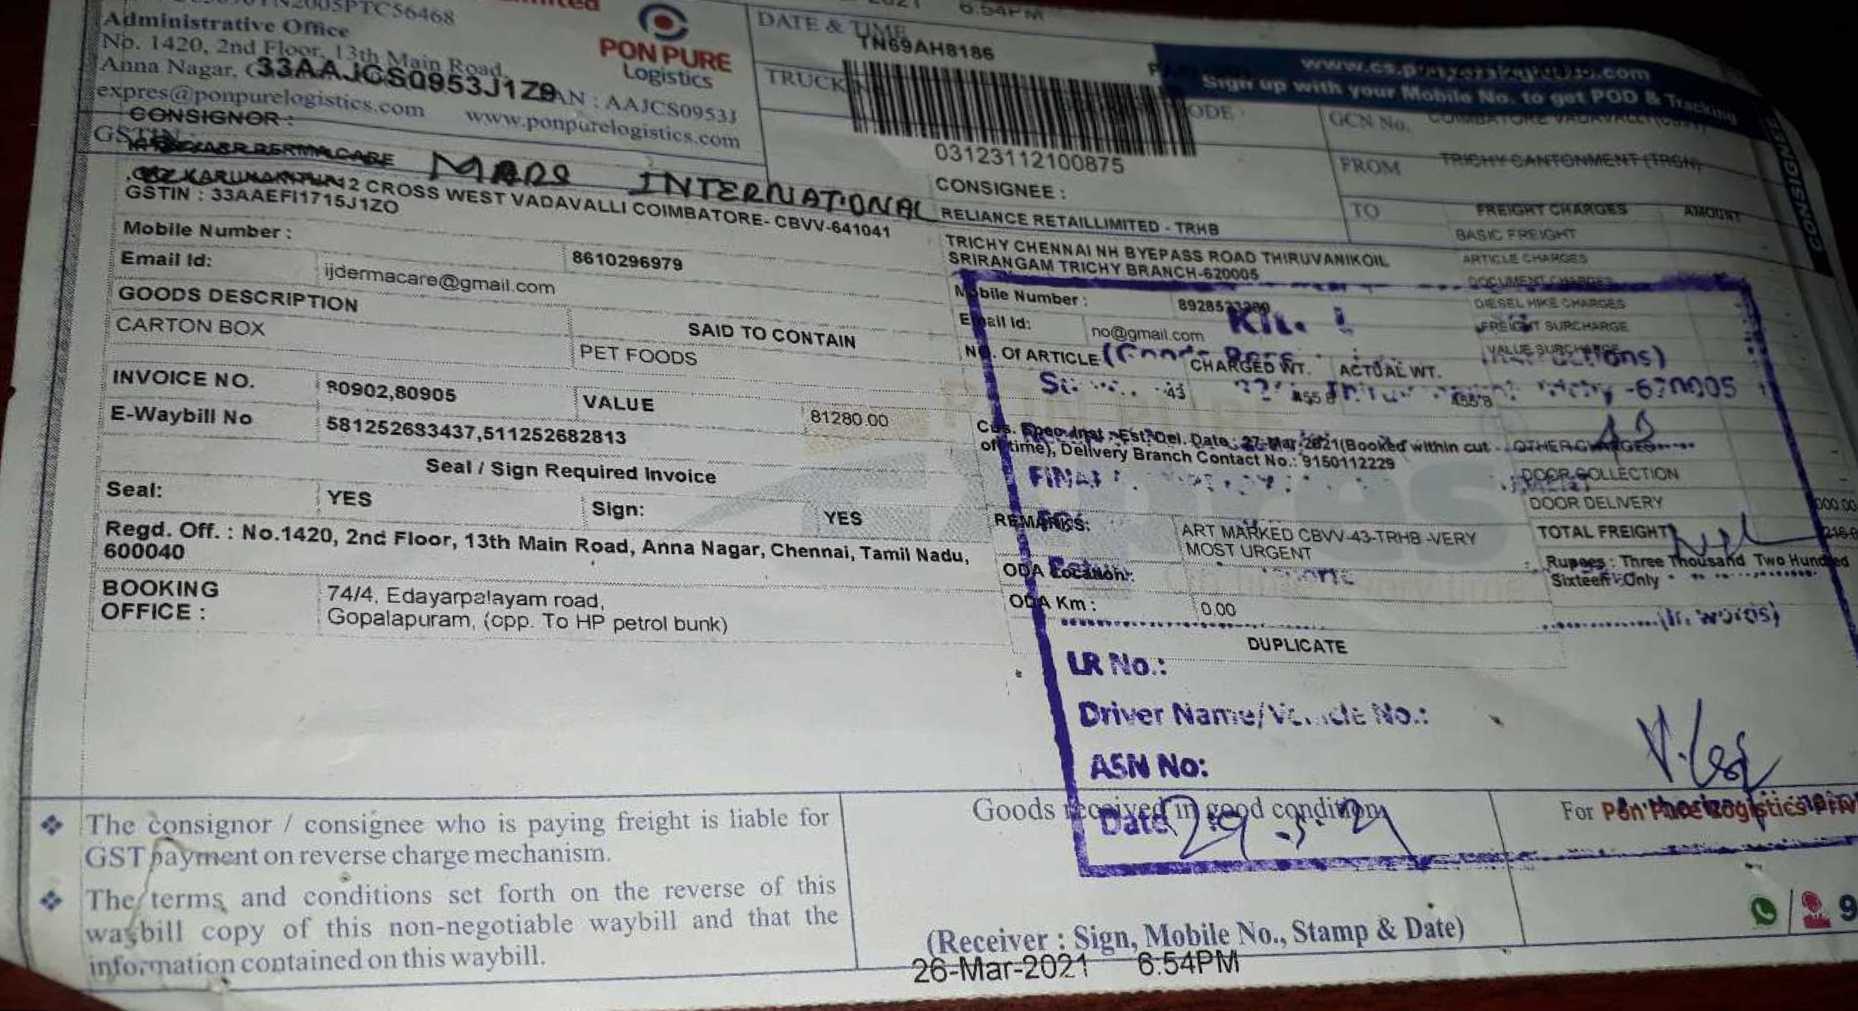 Administrative Office
No. 1420, 2nd Floor, 13th Main Road,
Anna Nagar,
33AAJCS0953J1Z9
PAN : AAJCS0953J
expres@ponpurelogistics.com www.ponpurelogistics.com
PON PURE
Logistics
CONSIGNOR :
GSTIN
MARS INTERNATIONAL
2 CROSS WEST VADAVALLI COIMBATORE- CBVV-641041
GSTIN : 33AAEFI1715J1ZO
Mobile Number :
8610296979
Email Id:
ijdermacare@gmail.com
GOODS DESCRIPTION
SAID TO CONTAIN
CARTON BOX
PET FOODS
INVOICE NO.
80902,80905
VALUE
81280.00
E-Waybill No
581252683437,511252682813
Seal / Sign Required Invoice
Seal:
YES
Sign:
YES
Regd. Off. : No.1420, 2nd Floor, 13th Main Road, Anna Nagar, Chennai, Tamil Nadu,
600040
BOOKING
OFFICE :
74/4, Edayarpalayam road,
Gopalapuram, (opp. To HP petrol bunk)
DATE & TIME
6:54PM
TN69AH8186
TRUCK
03123112100875
CONSIGNEE :
RELIANCE RETAILLIMITED - TRHB
TRICHY CHENNAI NH BYEPASS ROAD THIRUVANIKOIL
SRIRANGAM TRICHY BRANCH-620005
Mobile Number :
Email Id:
no@gmail.com
NO. Of ARTICLE
CHARGED WT.
ACTUAL WT.
43
Cus. Spec.Inst :Est.Del. Date : 27-Mar-2021(Booked within cut
of time), Delivery Branch Contact No.: 9150112229
REMARKS:
ART MARKED CBVV-43-TRHB -VERY
MOST URGENT
ODA Location:
ODA Km :
0.00
DUPLICATE
Sign up with your Mobile No. to get POD & Tracking
GCN No.
COIMBATORE VADAVALLI
FROM
TRICHY CANTONMENT
TO
FREIGHT CHARGES
AMOUNT
BASIC FREIGHT
ARTICLE CHARGES
DOCUMENT CHARGES
DIESEL HIKE CHARGES
FREIGHT SURCHARGE
VALUE SURCHARGE
OTHER CHARGES
DOOR COLLECTION
DOOR DELIVERY
TOTAL FREIGHT
Rupees : Three Thousand Two Hundred
Sixteen Only
CONSIGNEE
LR No.:
Driver Name/Vehicle No.:
ASN No:
Date 29-3-21
Goods received in good condition
For Pon Pure Logistics
The consignor / consignee who is paying freight is liable for
GST payment on reverse charge mechanism.
The terms and conditions set forth on the reverse of this
waybill copy of this non-negotiable waybill and that the
information contained on this waybill.
(Receiver : Sign, Mobile No., Stamp & Date)
26-Mar-2021 6:54PM